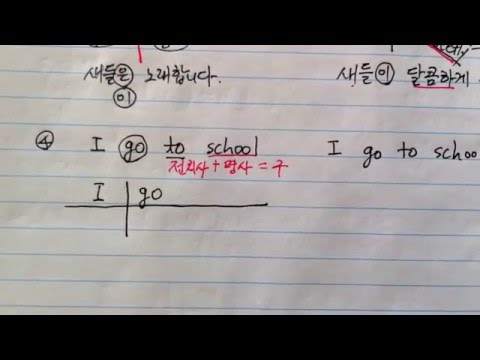 새들은 노래합니다.
이
새들이 달콤하게
④ I go to school
전치사+명사=구
I go
I go to schoo